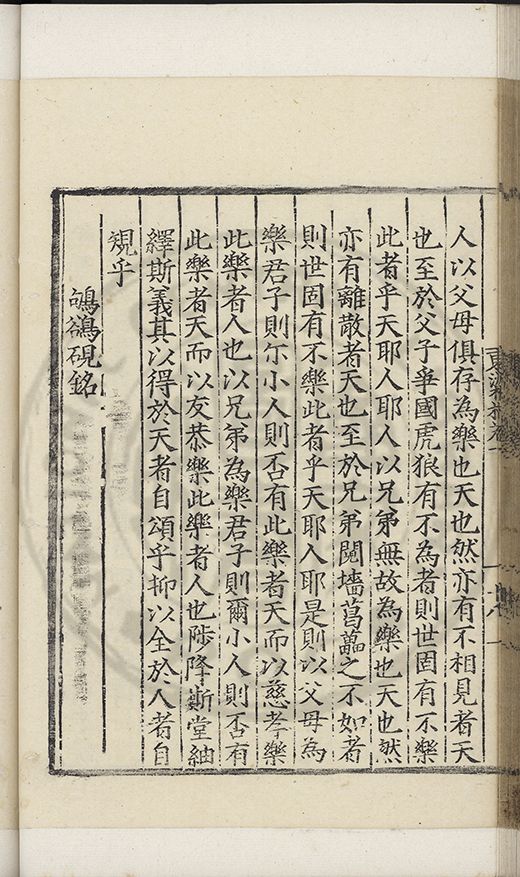 人以父母俱存為樂也天也然亦有不相見者天
也至於父子爭國虎狼有不為者則世固有不樂
此者乎天耶人耶人以兄弟無故為樂也天也然
亦有離散者天也至於兄弟䦧墻葛藟之不如者
則世固有不樂此者乎天耶人耶是則以父母為
樂君子則尓小人則否有此樂者天而以慈孝樂
此樂者人也以兄弟為樂君子則爾小人則否有
此樂者天而以友恭樂此樂者人也陟降斯堂紬
繹斯義其以得於天者自頌乎抑以全於人者自
規乎
鴝鵒硯銘